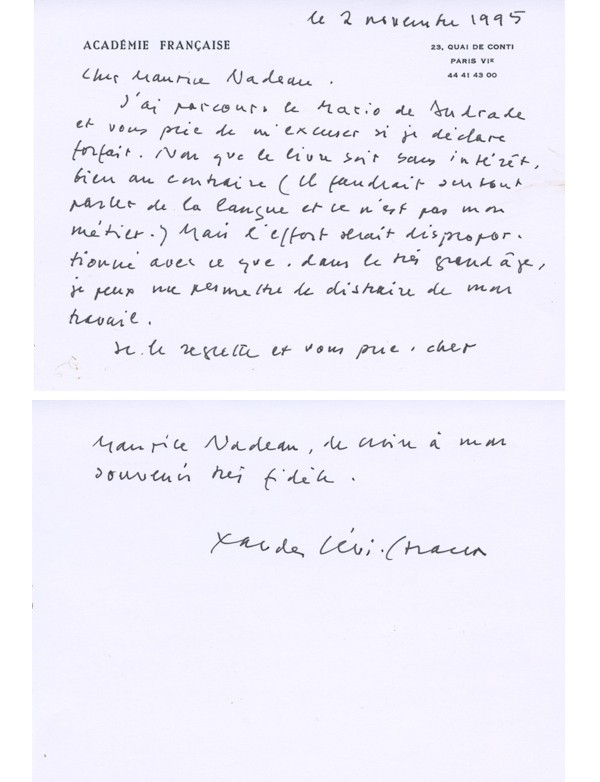 le 2 novembre 1995
ACADÉMIE FRANÇAISE
23, QUAI DE CONTI
PARIS VIE
44 41 43 00
Cher Maurice Nadeau.
J'ai parcouru le Mario de Andrade
et vous prie de m'excuser si je déclare
forfait. Non que le livre soit sans intérêt,
bien au contraire (Il faudrait surtout
parler de la langue et ce n'est pas mon
métier.) Mais l'effort serait dispropor-
tionné avec ce que, dans le très grand âge,
je peux me permettre de distraire de mon
travail.
Je le regrette et vous prie, cher
Maurice Nadeau, de croire à mon
souvenir très fidèle.
Claude Lévi-Strauss